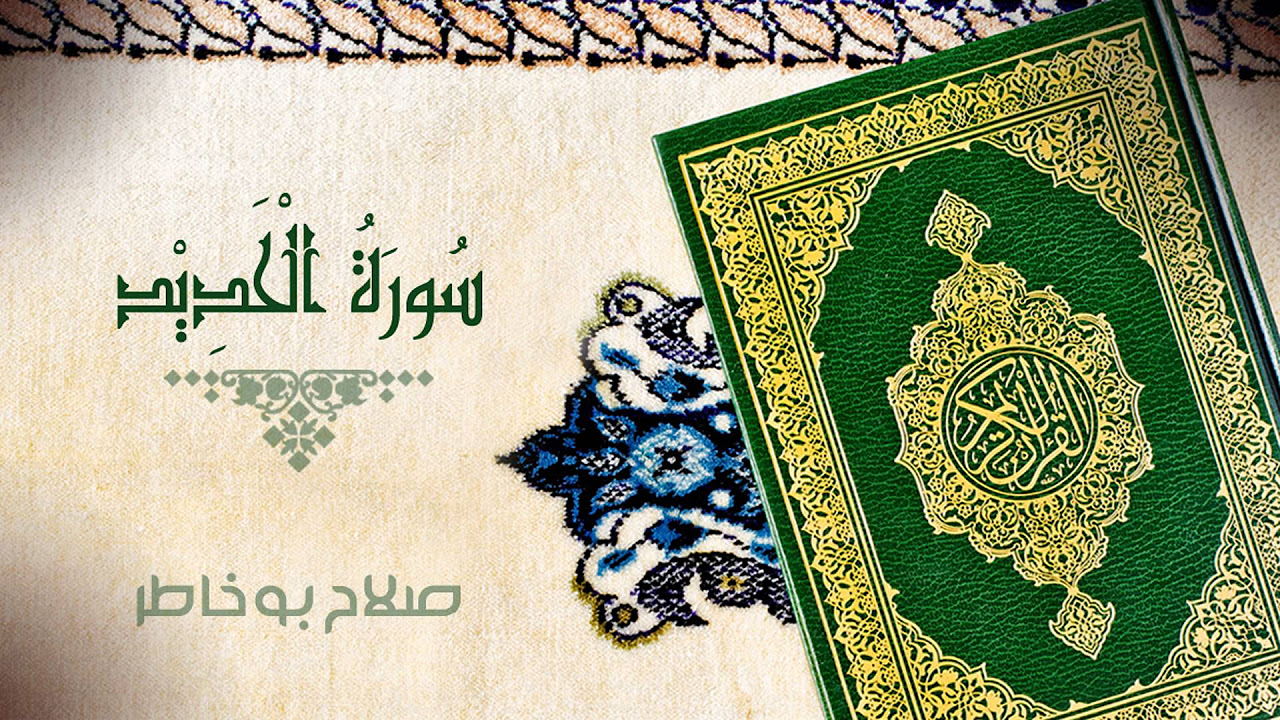 سُورَةُ الْحَدِيْد
صلاح بو خاطر
القرآن الكريم